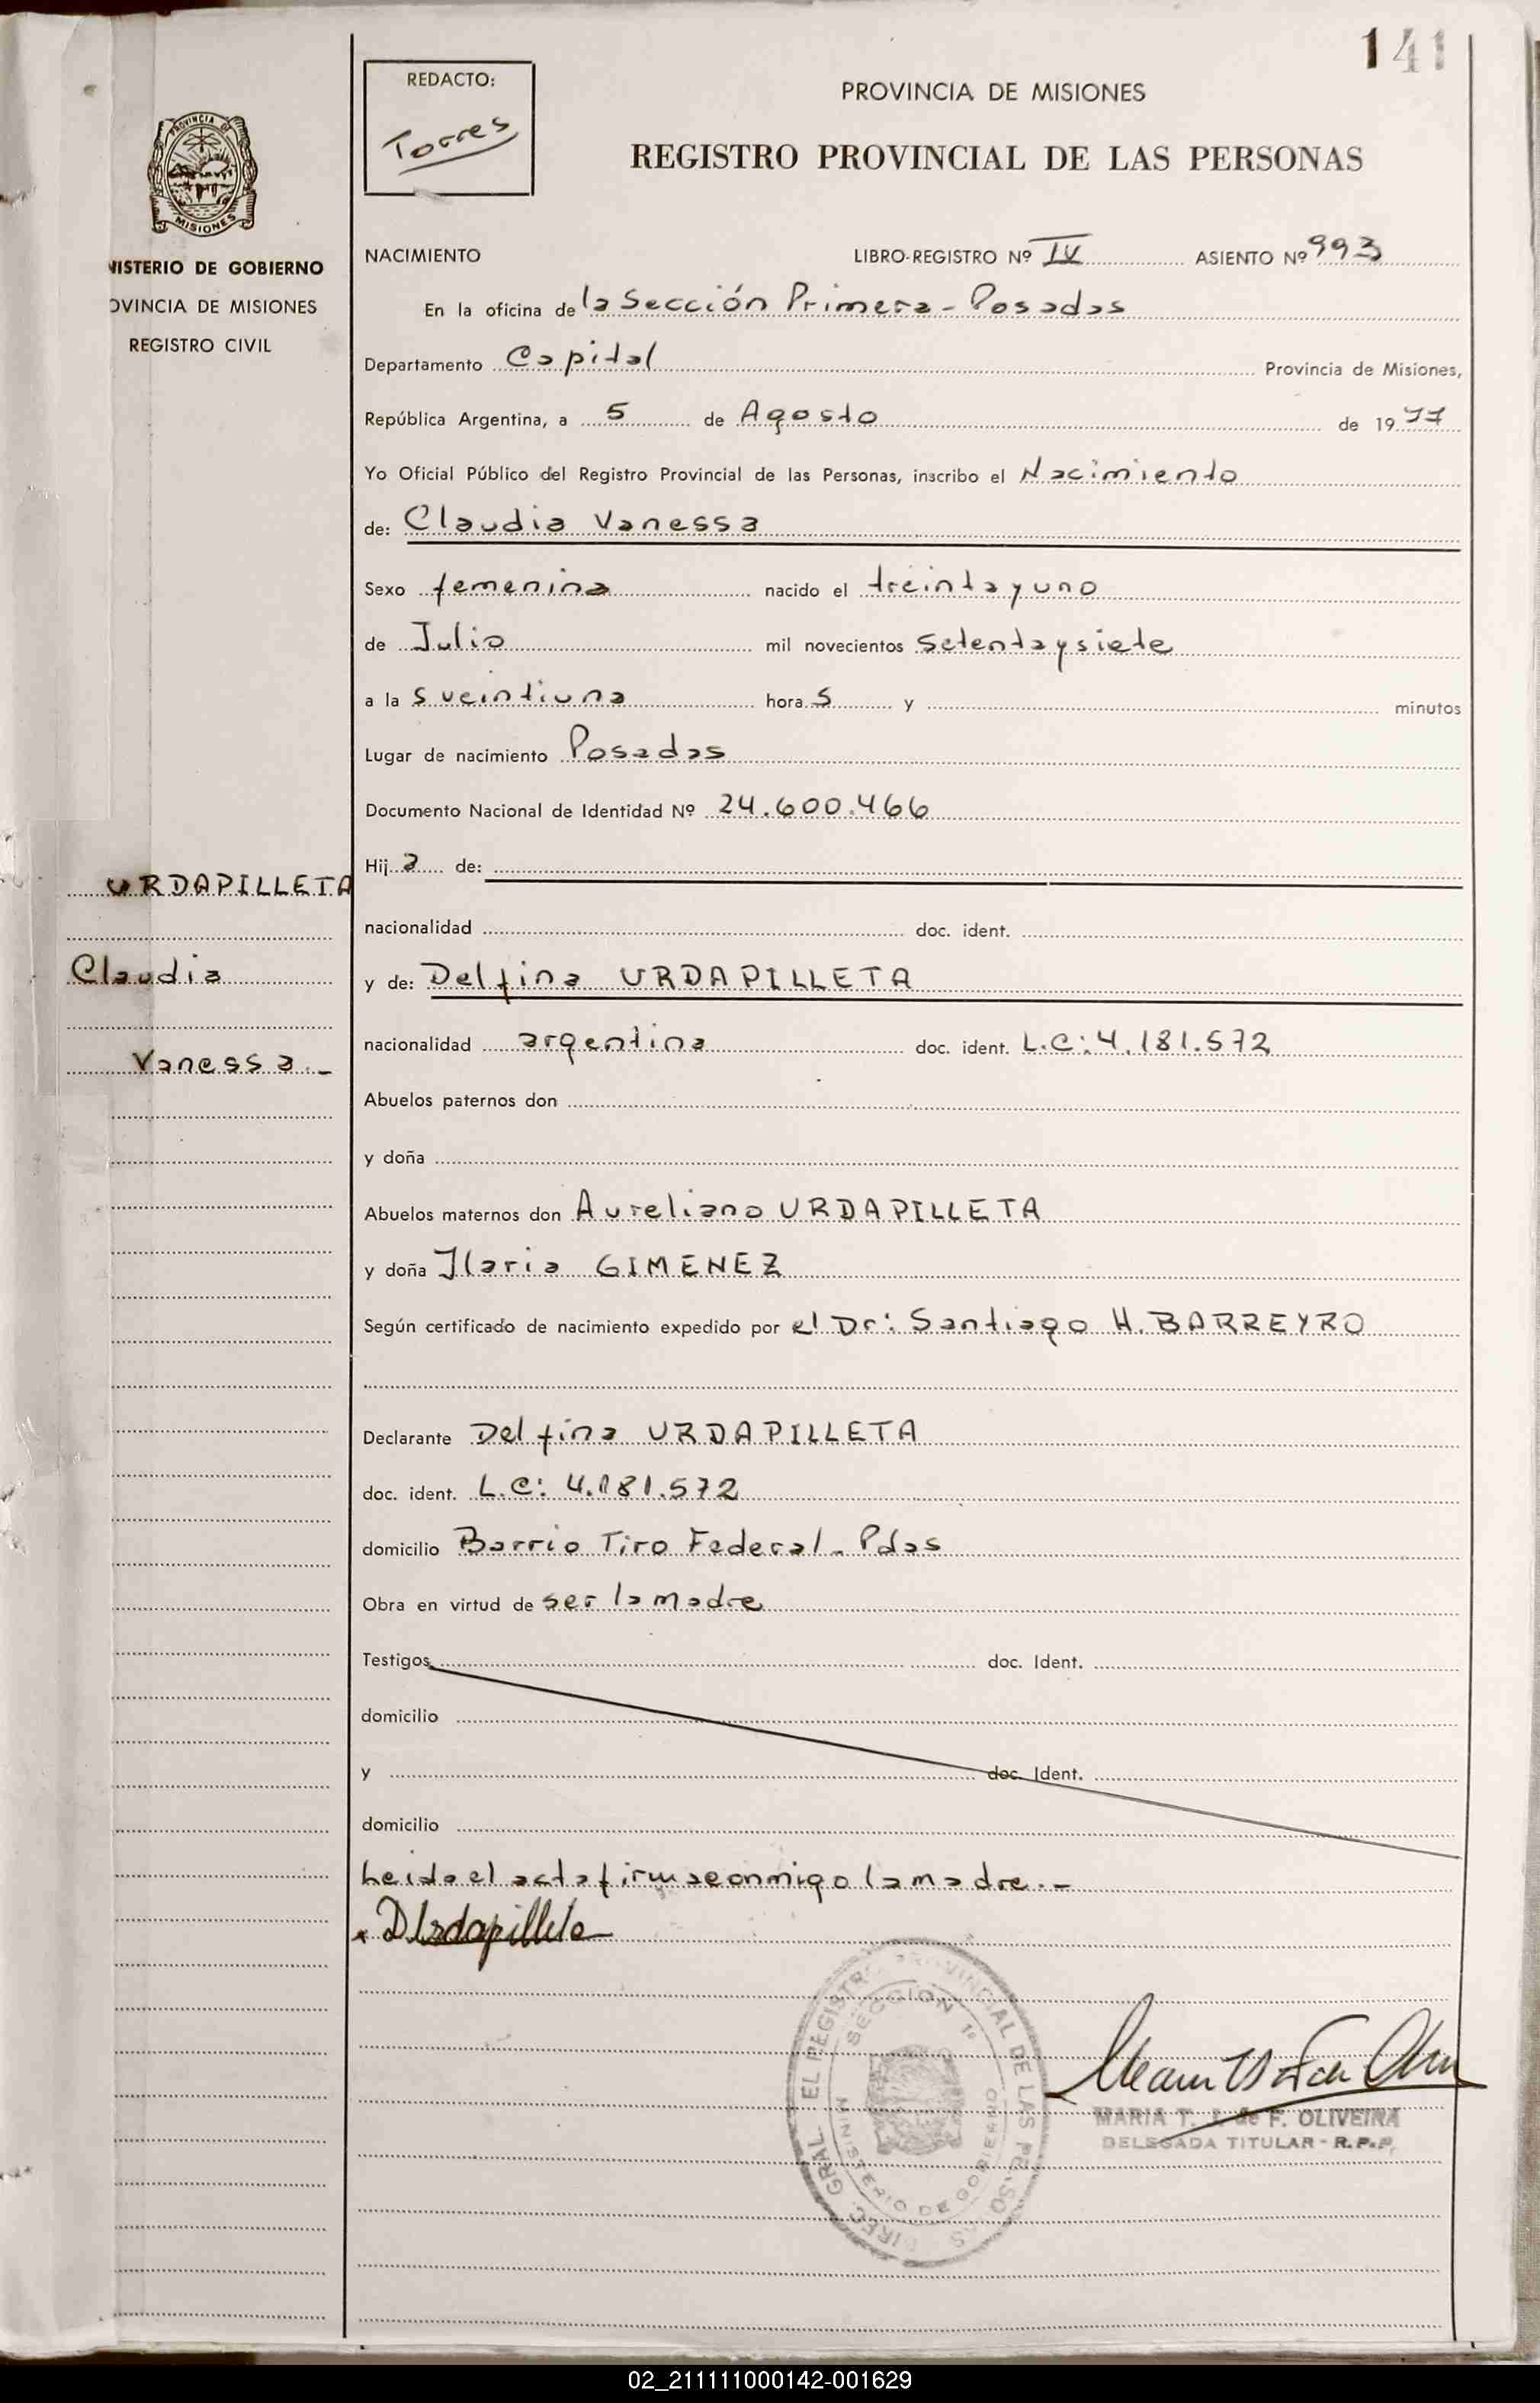 141
REDACTO:
Torres
PROVINCIA DE MISIONES
REGISTRO PROVINCIAL DE LAS PERSONAS
PROVINCIA DE
MISIONES
NISTERIO DE GOBIERNO
OVINCIA DE MISIONES
REGISTRO CIVIL
NACIMIENTO LIBRO-REGISTRO Nº IV ASIENTO Nº 993
En la oficina de la Sección Primera - Posadas
Departamento Capital Provincia de Misiones,
República Argentina, a 5 de Agosto de 1977
Yo Oficial Público del Registro Provincial de las Personas, inscribo el Nacimiento
de: Claudia Vanessa
Sexo femenina nacido el treinta y uno
de Julio mil novecientos setenta y siete
a la s veintiuna hora s y minutos
Lugar de nacimiento Posadas
Documento Nacional de Identidad Nº 24.600.466
Hij a de:
nacionalidad doc. ident.
y de: Delfina URDAPILLETA
nacionalidad argentina doc. ident. L.C: 4.181.572
Abuelos paternos don
y doña
Abuelos maternos don Aureliano URDAPILLETA
y doña Ilaria GIMENEZ
Según certificado de nacimiento expedido por el Dr: Santiago H. BARREYRO
Declarante Delfina URDAPILLETA
doc. ident. L.C: 4.181.572
domicilio Barrio Tiro Federal - Pdas
Obra en virtud de ser la madre
Testigos doc. Ident.
domicilio
y doc. Ident.
domicilio
Leida el acta firma conmigo la madre.-
DUrdapilleta
URDAPILLETA
Claudia
Vanessa.-
DIREC. GRAL EL REGISTRO PROVINCIAL DE LAS PERSONAS
SECCION 1ª
MINISTERIO DE GOBIERNO
MARIA T. J. de F. OLIVEIRA
DELEGADA TITULAR - R.P.P.
02_211111000142-001629